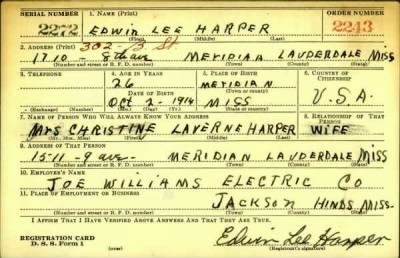 SERIAL NUMBER 1. NAME (Print) ORDER NUMBER
2272 EDWIN LEE HARPER 2243
(First) (Middle) (Last)
2. ADDRESS (Print) 302-
1710 - 8th ave MERIDIAN LAUDERDALE MISS
(Number and street or R. F. D. number) (Town) (County) (State)
3. TELEPHONE 4. AGE IN YEARS 5. PLACE OF BIRTH 6. COUNTRY OF CITIZENSHIP
26 MERIDIAN
DATE OF BIRTH (Town or county)
OCT 2 - 1914 MISS U.S.A.
(Exchange) (Number) (Mo.) (Day) (Yr.) (State or country)
7. NAME OF PERSON WHO WILL ALWAYS KNOW YOUR ADDRESS 8. RELATIONSHIP OF THAT PERSON
Mrs CHRISTINE LAVERNE HARPER WIFE
(Mr., Mrs., Miss) (First) (Middle) (Last)
9. ADDRESS OF THAT PERSON
1511 - 9 ave - MERIDIAN LAUDERDALE MISS
(Number and street or R. F. D. number) (Town) (County) (State)
10. EMPLOYER'S NAME
JOE WILLIAMS ELECTRIC CO
11. PLACE OF EMPLOYMENT OR BUSINESS
JACKSON HINDS MISS.
(Number and street or R. F. D. number) (Town) (County) (State)
I AFFIRM THAT I HAVE VERIFIED ABOVE ANSWERS AND THAT THEY ARE TRUE.
REGISTRATION CARD
D. S. S. Form 1 (over) Edwin Lee Harper
(Registrant's signature)